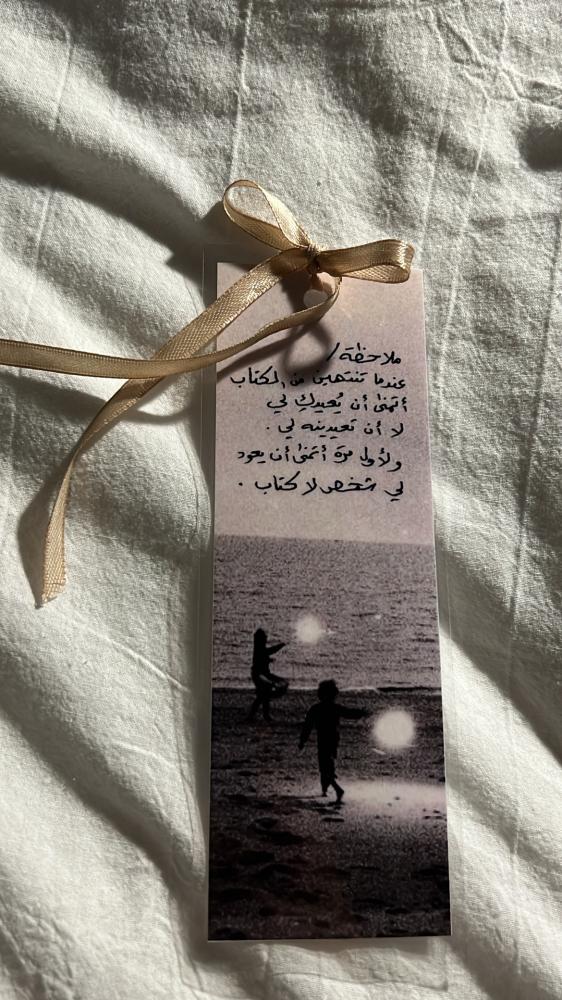 ملاحظة/
عندما تنتهين من الكتاب
أتمنى أن يُعيدكِ لي
لا أن تعيدينه لي .
ولأول مرة أتمنى أن يعود
لي شخص لا كتاب .